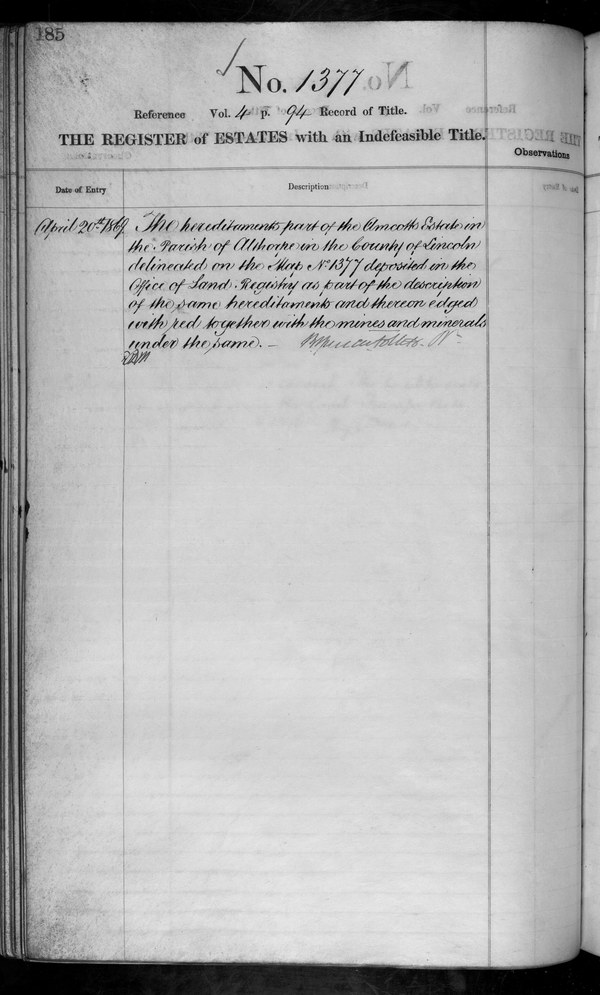 185
No. 1377
Reference Vol. 4 p. 94 Record of Title.
THE REGISTER of ESTATES with an Indefeasible Title.
Observations
Date of Entry
Description
April 20th 1869
The hereditaments part of the Amcotts Estate in
the Parish of Althorpe in the County of Lincoln
delineated on the Map No 1377 deposited in the
Office of Land Registry as part of the description
of the same hereditaments and thereon edged
with red together with the mines and minerals
under the same. –